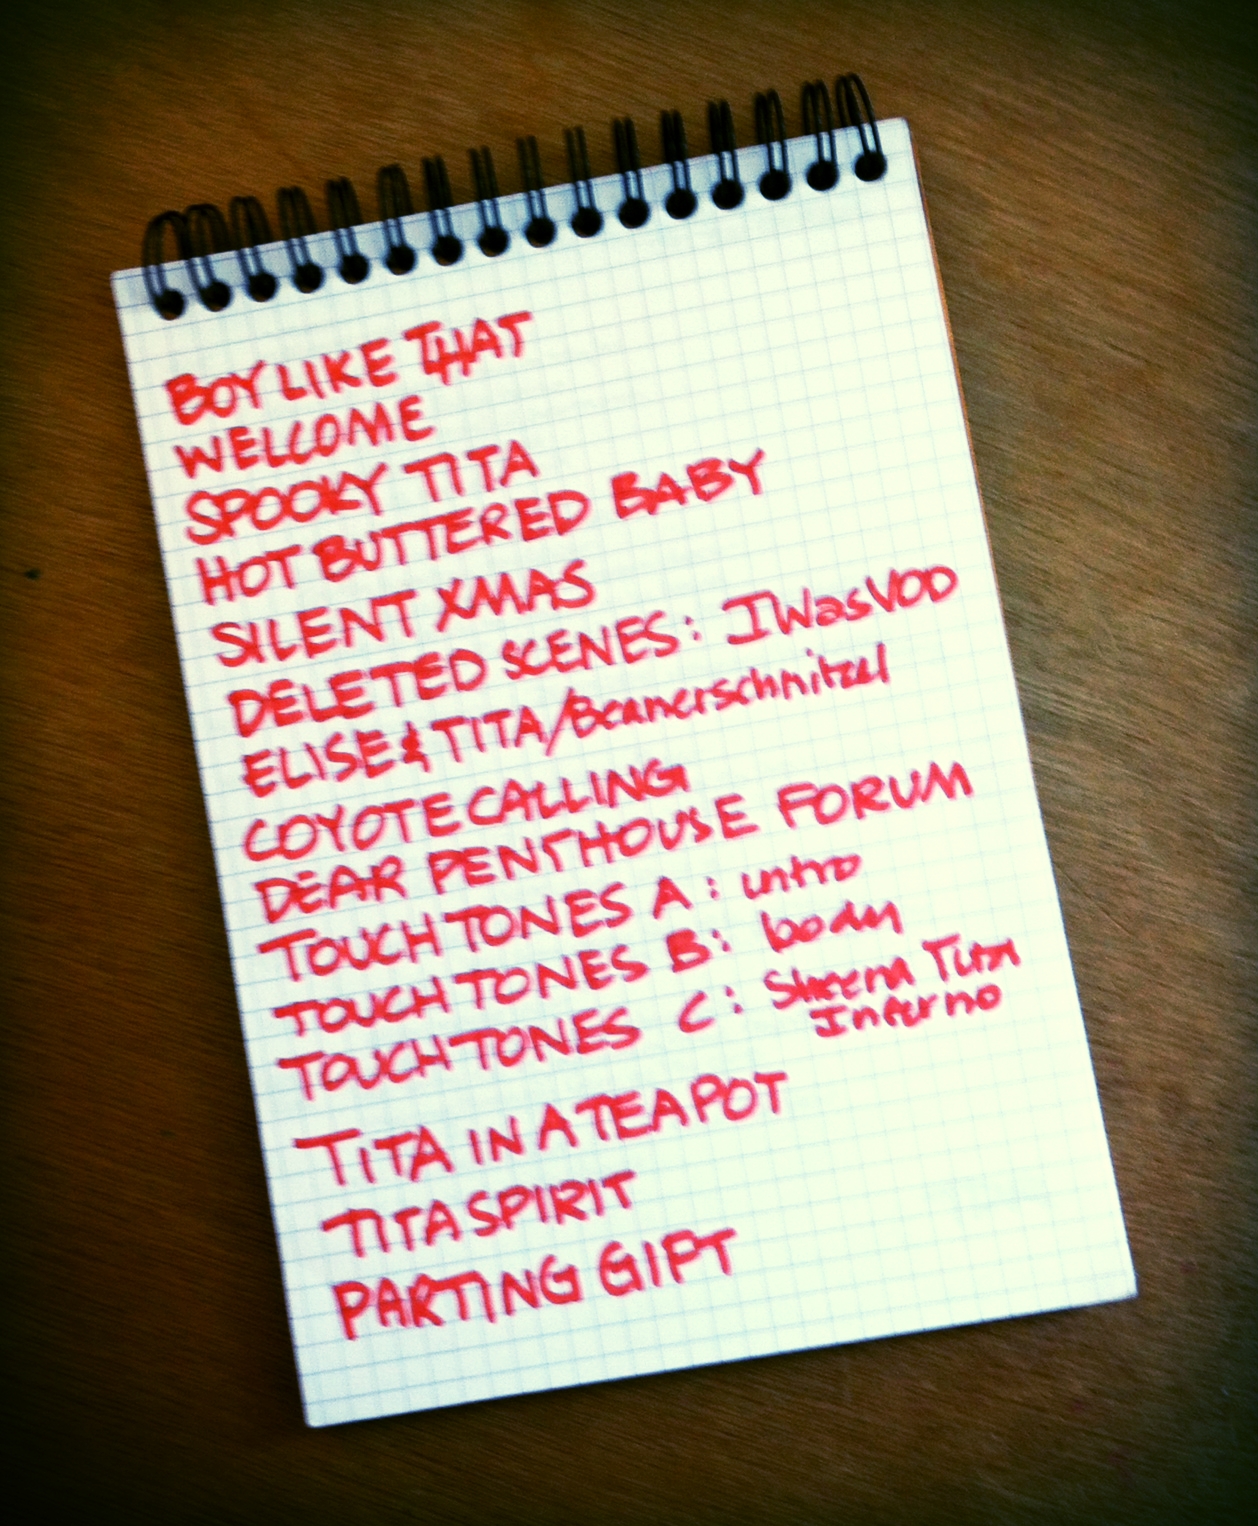 BOY LIKE THAT
WELCOME
SPOOKY TITA
HOT BUTTERED BABY
SILENT XMAS
DELETED SCENES: I Was VOD
ELISE & TITA/Beanerschnitzel
COYOTE CALLING
DEAR PENTHOUSE FORUM
TOUCH TONES A: intro
TOUCH TONES B: body
TOUCH TONES C: Sheena Tita
Inferno
TITA IN A TEAPOT
TITA SPIRIT
PARTING GIFT